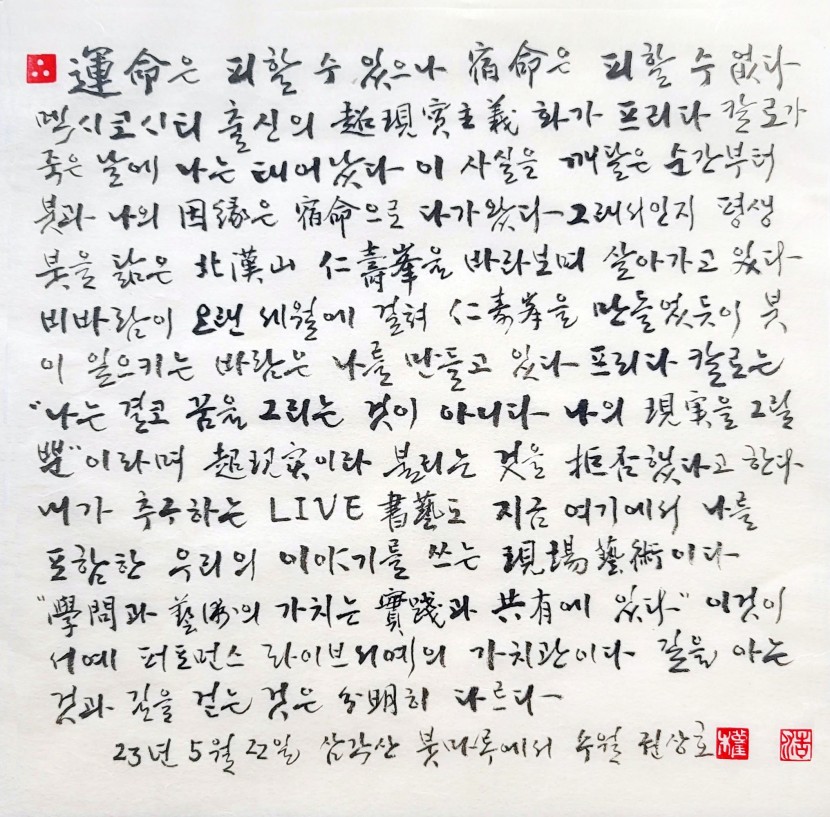 運命은 피할 수 있으나 宿命은 피할 수 없다
멕시코시티 출신의 超現實主義 화가 프리다 칼로가
죽은 날에 나는 태어났다 이 사실을 깨달은 순간부터
붓과 나의 因緣은 宿命으로 다가왔다 그래서인지 평생
붓을 닮은 北漢山 仁壽峯을 바라보며 살아가고 있다
비바람이 오랜 세월에 걸쳐 仁壽峯을 만들었듯이 붓
이 일으키는 바람은 나를 만들고 있다 프리다 칼로는
"나는 결코 꿈을 그리는 것이 아니다 나의 現実을 그릴
뿐"이라며 超現実이라 불리는 것을 拒否했다고 한다
내가 추구하는 LIVE 書藝도 지금 여기에서 나를
포함한 우리의 이야기를 쓰는 現場藝術이다
"學問과 藝術의 가치는 實踐과 共有에 있다" 이것이
서예 퍼포먼스 라이브서예의 가치관이다 길을 아는
것과 길을 걷는 것은 分明히 다르다
23년 5월 22일 삼각산 붓마루에서 수월 권상호 權 浩